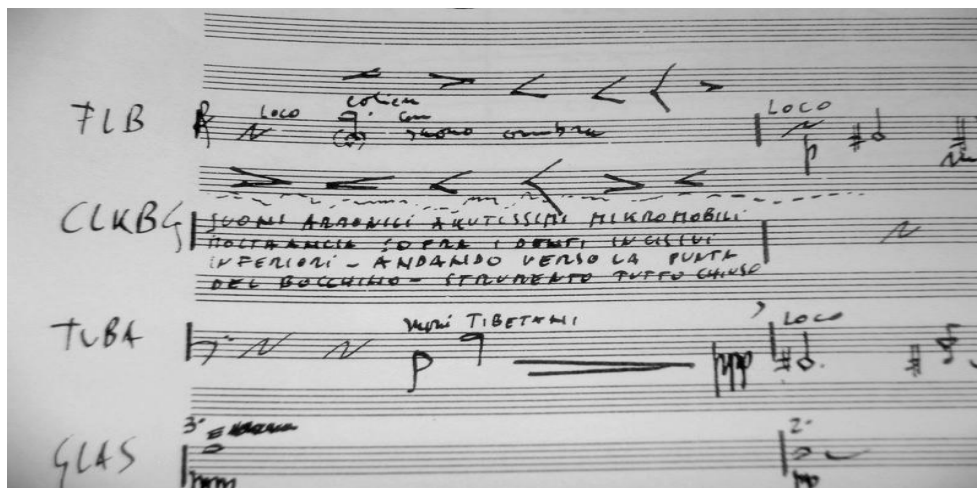 FLB
LOCO
con
suono ombra
LOCO
p
CLKBG
SUONI ARMONICI AKUTISSIMI MIKROMOBILI
SOPRA I DENTI INCISIVI
INFERIORI - ANDANDO VERSO LA PUNTA
DEL BOCCHINO - STRUMENTO TUTTO CHIUSO
TUBA
suoni TIBETANI
LOCO
p
GLAS
3°
2°